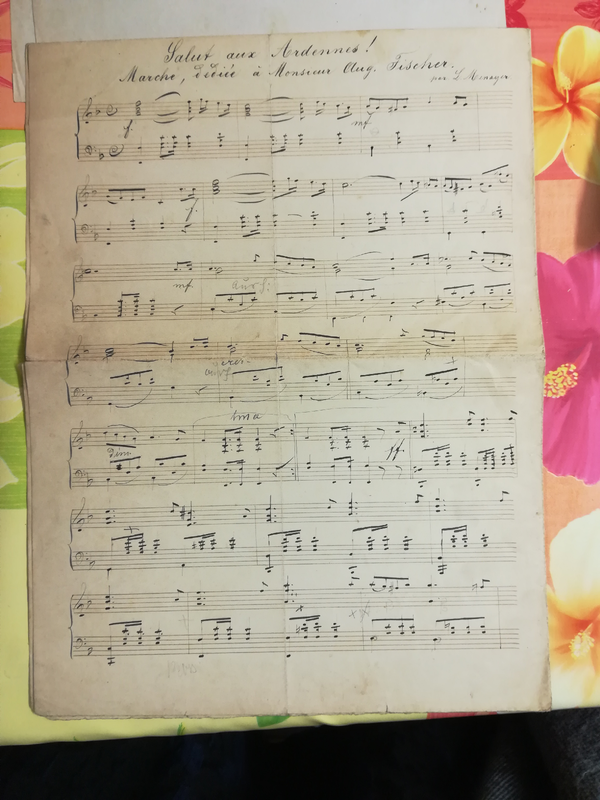 Salut aux Ardennes!
Marche, dédiée à Monsieur Aug. Fischer.
par L. Menager
f.
mf
f.
mf
cresc.
dim.
ff.